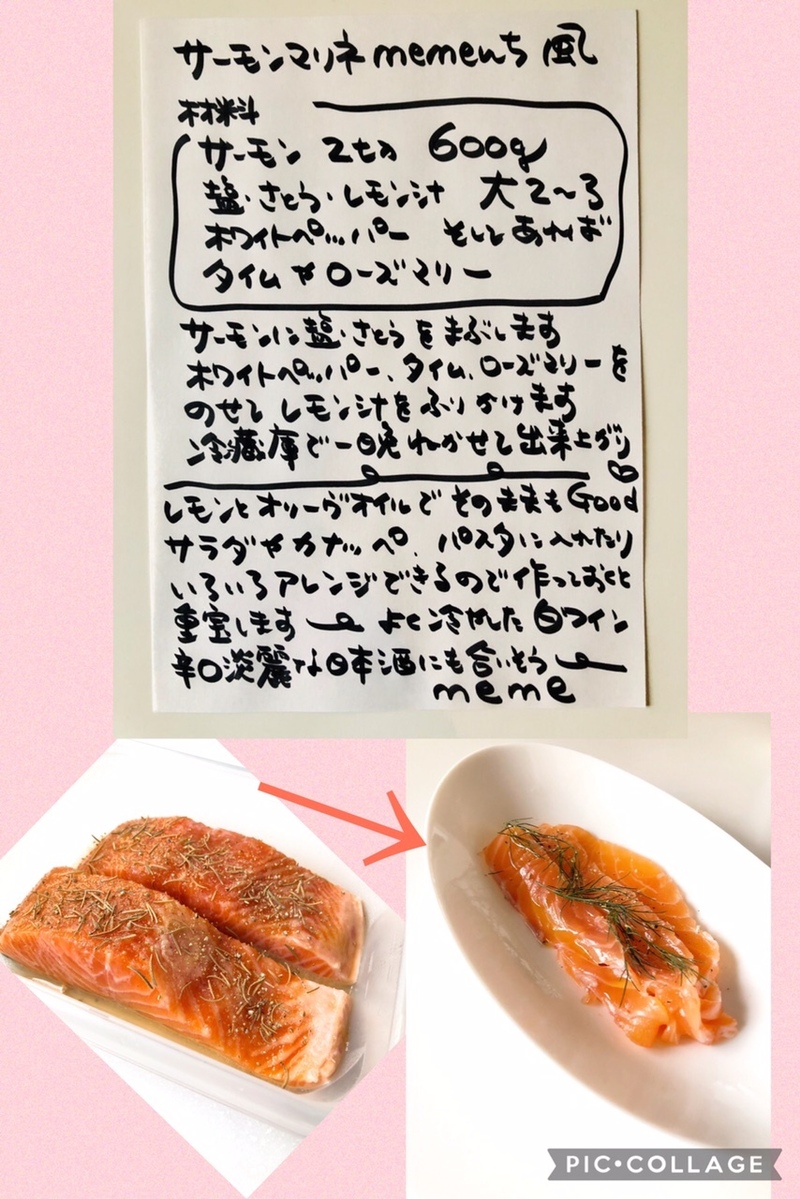 サーモンマリネmemeんち風
材料
サーモン 2切 600g
塩・さとう・レモン汁 大2〜3
ホワイトペッパー そしてあれば
タイムやローズマリー
サーモンに塩・さとうをまぶします
ホワイトペッパー、タイム、ローズマリーを
のせてレモン汁をふりかけます
冷蔵庫で一晩ねかせて出来上がり
レモンとオリーヴオイルでそのままもGood
サラダやカナッペ、パスタに入れたり
いろいろアレンジできるので作っておくと
重宝します よく冷やした白ワイン
辛口淡麗な日本酒にも合いそう
meme
PIC•COLLAGE